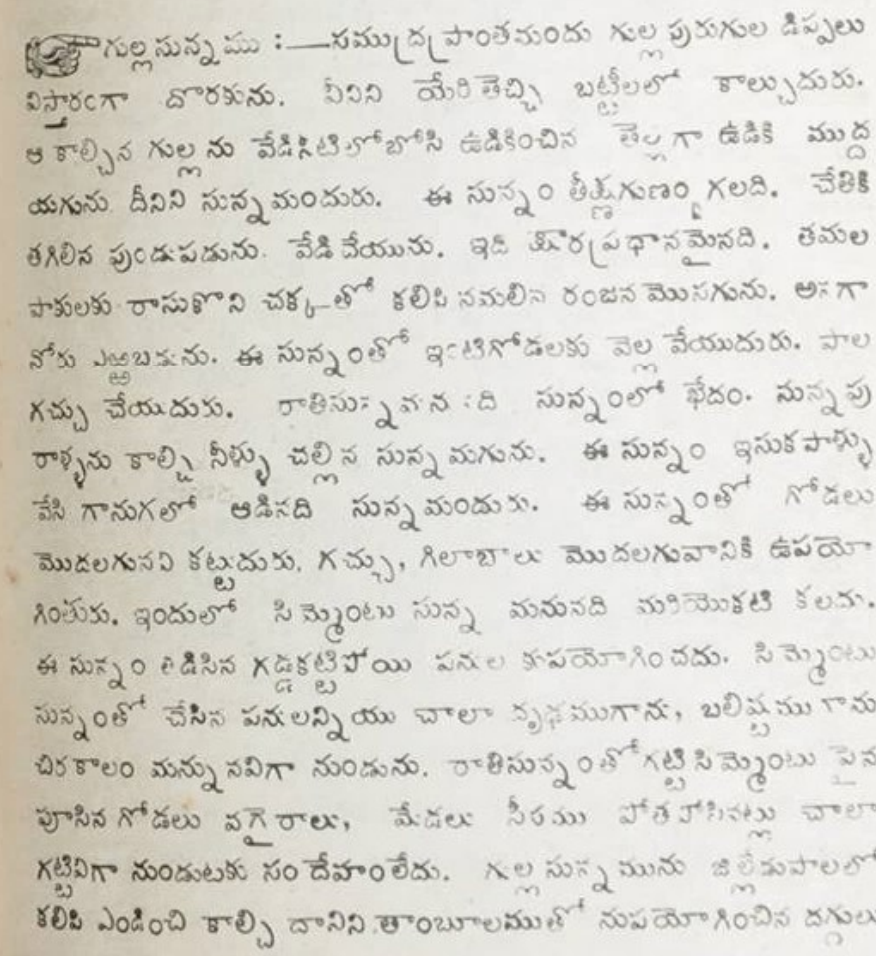 గుల్లసున్నము :—సముద్రప్రాంతమందు గుల్ల పురుగుల డిప్పలు
విస్తారంగా దొరకును. వీనిని యేరితెచ్చి బట్టీలలో కాల్చుదురు.
ఆ కాల్చిన గుల్లను వేడినీటిలోబోసి ఉడికించిన తెల్లగా ఉడికి ముద్ద
యగును. దీనిని సున్నమందురు. ఈ సున్నం తీక్ష్ణగుణం గలది. చేతికి
తగిలిన పుండుపడును. వేడి చేయును. ఇది క్షారప్రధానమైనది. తమల
పాకులకు రాసుకొని చక్కతో కలిపి నమలిన రంజన మొసగును. అనగా
నోరు ఎఱ్ఱబడును. ఈ సున్నంతో ఇంటిగోడలకు వెల్ల వేయుదురు. పాల
గచ్చు చేయుదురు. రాతిసున్నమనునది సున్నంలో భేదం. నున్నపు
రాళ్ళను కాల్చి నీళ్ళు చల్లిన సున్నమగును. ఈ సున్నం ఇసుకపాళ్ళు
వేసి గానుగలో ఆడినది సున్నమందురు. ఈ సున్నంతో గోడలు
మొదలగునవి కట్టుదురు. గచ్చు, గిలాబాలు మొదలగువానికి ఉపయో
గింతురు. ఇందులో సిమ్మెంటు సున్న మనునది మరియొకటి కలదు.
ఈ సున్నం తడిసిన గడ్డకట్టిపోయి పనుల కుపయోగించదు. సిమ్మెంటు
సున్నంతో చేసిన పనులన్నియు చాలా దృఢముగాను, బలిష్టము గాను
చిరకాలం మన్నునవిగా నుండును. రాతిసున్నంతోగట్టి సిమ్మెంటు పైన
పూసిన గోడలు వగైరాలు, మేడలు సీసము పోతపోసినట్లు చాలా
గట్టివిగా నుండుటకు సందేహంలేదు. గుల్ల సున్నమును జిల్లేడుపాలలో
కలిపి ఎండించి కాల్చి దానిని తాంబూలముతో నుపయోగించిన దగ్గులు